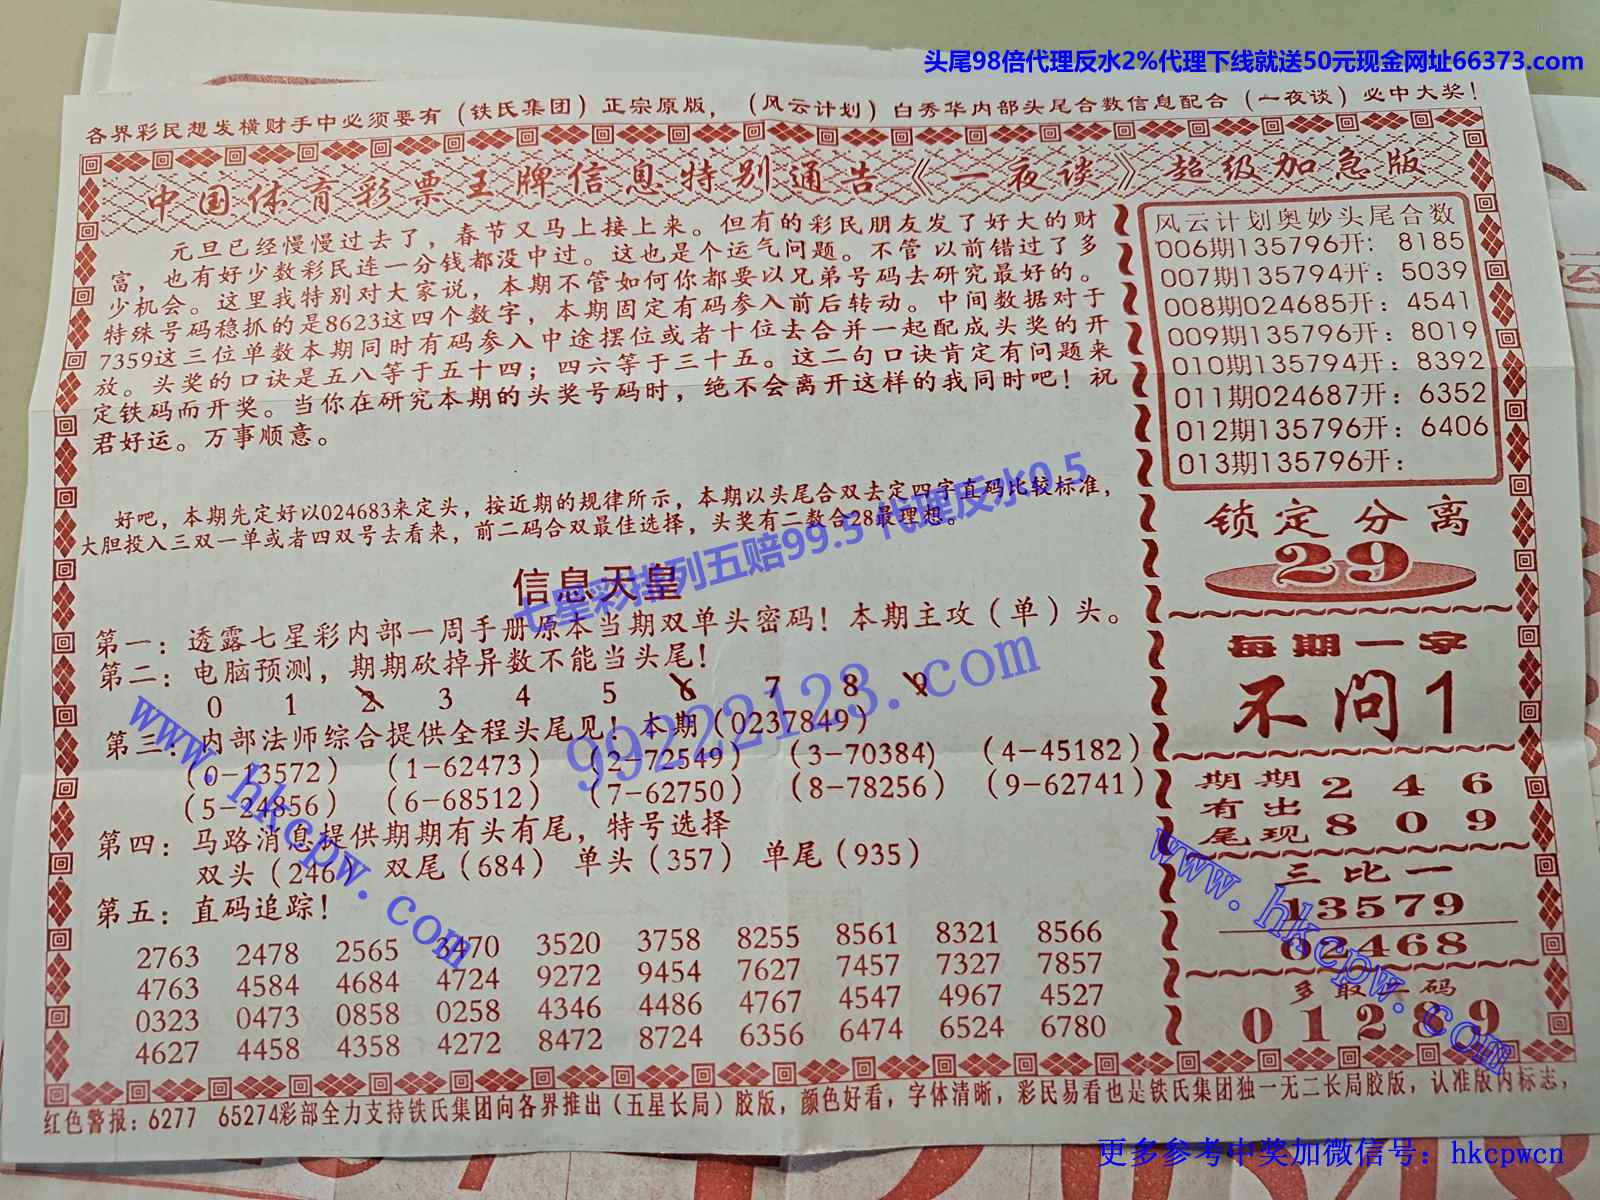 头尾98倍代理反水2%代理下线就送50元现金网址66373.com
各界彩民想发横财手中必须要有（铁氏集团）正宗原版，（风云计划）白秀华内部头尾合数信息配合（一夜谈）必中大奖！
中国体育彩票王牌信息特别通告《一夜谈》超级加急版
元旦已经慢慢过去了，春节又马上接上来。但有的彩民朋友发了好大的财
富，也有好少数彩民连一分钱都没中过。这也是个运气问题。不管以前错过了多
少机会。这里我特别对大家说，本期不管如何你都要以兄弟号码去研究最好的。
特殊号码稳抓的是8623这四个数字，本期固定有码参入前后转动。中间数据对于
7359这三位单数本期同时有码参入中途摆位或者十位去合并一起配成头奖的开
放。头奖的口诀是五八等于五十四；四六等于三十五。这二句口诀肯定有问题来
定铁码而开奖。当你在研究本期的头奖号码时，绝不会离开这样的我同时吧！祝
君好运。万事顺意。
好吧，本期先定好以024683来定头，按近期的规律所示，本期以头尾合双去定四字直码比较标准，
大胆投入三双一单或者四双号去看来，前二码合双最佳选择，头奖有二数合28最理想。
信息天皇
第一：透露七星彩内部一周手册原本当期双单头密码！本期主攻（单）头。
第二：电脑预测，期期砍掉异数不能当头尾！
0 1 2 3 4 5 6 7 8 9
第三：内部法师综合提供全程头尾见！本期（0237849）
（0-13572） （1-62473） （2-72549） （3-70384） （4-45182）
（5-24856） （6-68512） （7-62750） （8-78256） （9-62741）
第四：马路消息提供期期有头有尾，特号选择
双头（246） 双尾（684） 单头（357） 单尾（935）
第五：直码追踪！
2763 2478 2565 3470 3520 3758 8255 8561 8321 8566
4763 4584 4684 4724 9272 9454 7627 7457 7327 7857
0323 0473 0858 0258 4346 4486 4767 4547 4967 4527
4627 4458 4358 4272 8472 8724 6356 6474 6524 6780
风云计划奥妙头尾合数
006期135796开：8185
007期135794开：5039
008期024685开：4541
009期135796开：8019
010期135794开：8392
011期024687开：6352
012期135796开：6406
013期135796开：
锁定分离
29
每期一字
不问1
期期 2 4 6
有出
尾现 8 0 9
三比一
13579
02468
多取一码
0 1 2 8 9
红色警报：6277 65274彩部全力支持铁氏集团向各界推出（五星长局）胶版，颜色好看，字体清晰，彩民易看也是铁氏集团独一无二长局胶版，认准版内标志，
七星彩排列五赔99.5 代理反水0.5
99222123.com
www.hkcpw.com
www.hkcpw.com
更多参考中奖加微信号：hkcpwcn